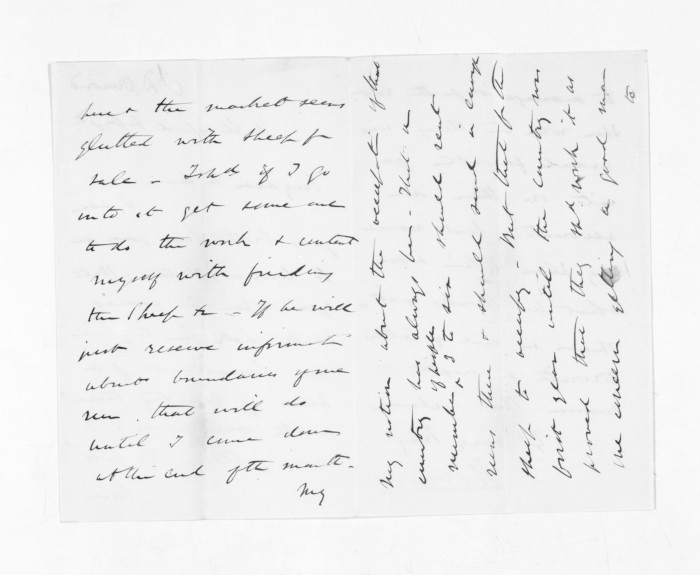 here & the market seems
glutted with sheep for
sale - I shd if I go
into it get some one
to do the work & content
myself with finding
the sheep &c - If he will
just reserve informatn
about boundaries of some
run. that will do
until I come down
at the end of the month -
My
My notion about the occupatn of that
country has always been - That a
number of people 3 to six should rent
runs there & should send in enough
sheep to occupy - But that for the
first year until the country was
proved that they shd work it as
one concern getting a good man
to